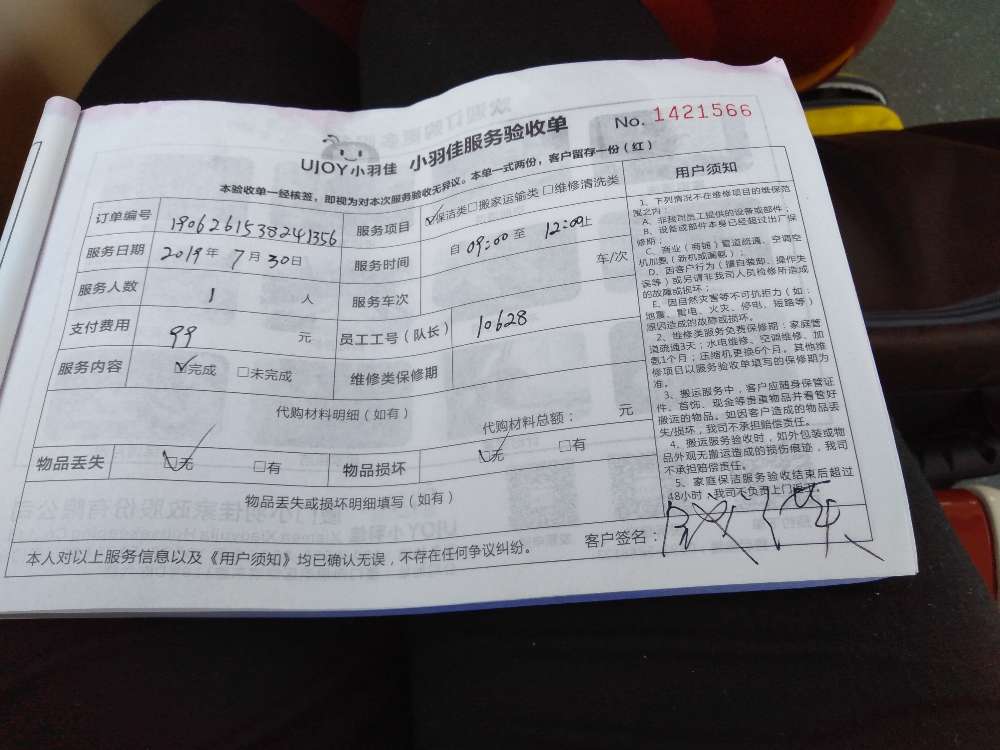 No. 1421566
UJOY小羽佳 小羽佳服务验收单
本验收单一经核签，即视为对本次服务验收无异议。本单一式两份，客户留存一份（红）
订单编号 1906261538241356 服务项目 ☑保洁类□搬家运输类 □维修清洗类
服务日期 2019年 7月 30日 服务时间 自 09:00 至 12:00止
服务人数 1 人 服务车次 车/次
支付费用 99 元 员工工号（队长） 10628
服务内容 ☑完成 □未完成 维修类保修期
代购材料明细（如有） 代购材料总额： 元
物品丢失 ☑无 □有 物品损坏 ☑无 □有
物品丢失或损坏明细填写（如有）
本人对以上服务信息以及《用户须知》均已确认无误，不存在任何争议纠纷。 客户签名：
用户须知
1、下列情况不在维修项目的维保范
围之内：
A、非我司员工提供的设备或部件；
B、设备或部件本身已经超过出厂保
修期；
C、商业（商铺）管道疏通、空调空
机加氨（新机或漏氨）；
D、因客户行为（擅自装卸、操作失
误等）或另请非我司人员检修所造成
的故障或损坏；
E、因自然灾害等不可抗拒力（如：
地震、雷电、火灾、停电、短路等）
原因造成的故障或损坏。
2、维修类服务免费保修期：家庭管
道疏通3天；水电维修、空调维修、加
氨1个月；压缩机更换6个月。其他维
修项目以服务验收单填写的保修期为
准。
3、搬运服务中，客户应随身保管证
件、首饰、现金等贵重物品并看管好
搬运的物品。如因客户造成的物品丢
失/损坏，我司不承担赔偿责任。
4、搬运服务验收时，如外包装或物
品外观无搬运造成的损伤痕迹，我司
不承担赔偿责任。
5、家庭保洁服务验收结束后超过
48小时，我司不负责上门返工。